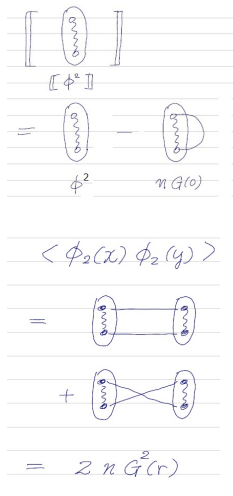 [[ ϕ² ]]
=
−
ϕ²
n G(0)
< ϕ₂(x) ϕ₂(y) >
=
+
= 2 n G²(r)